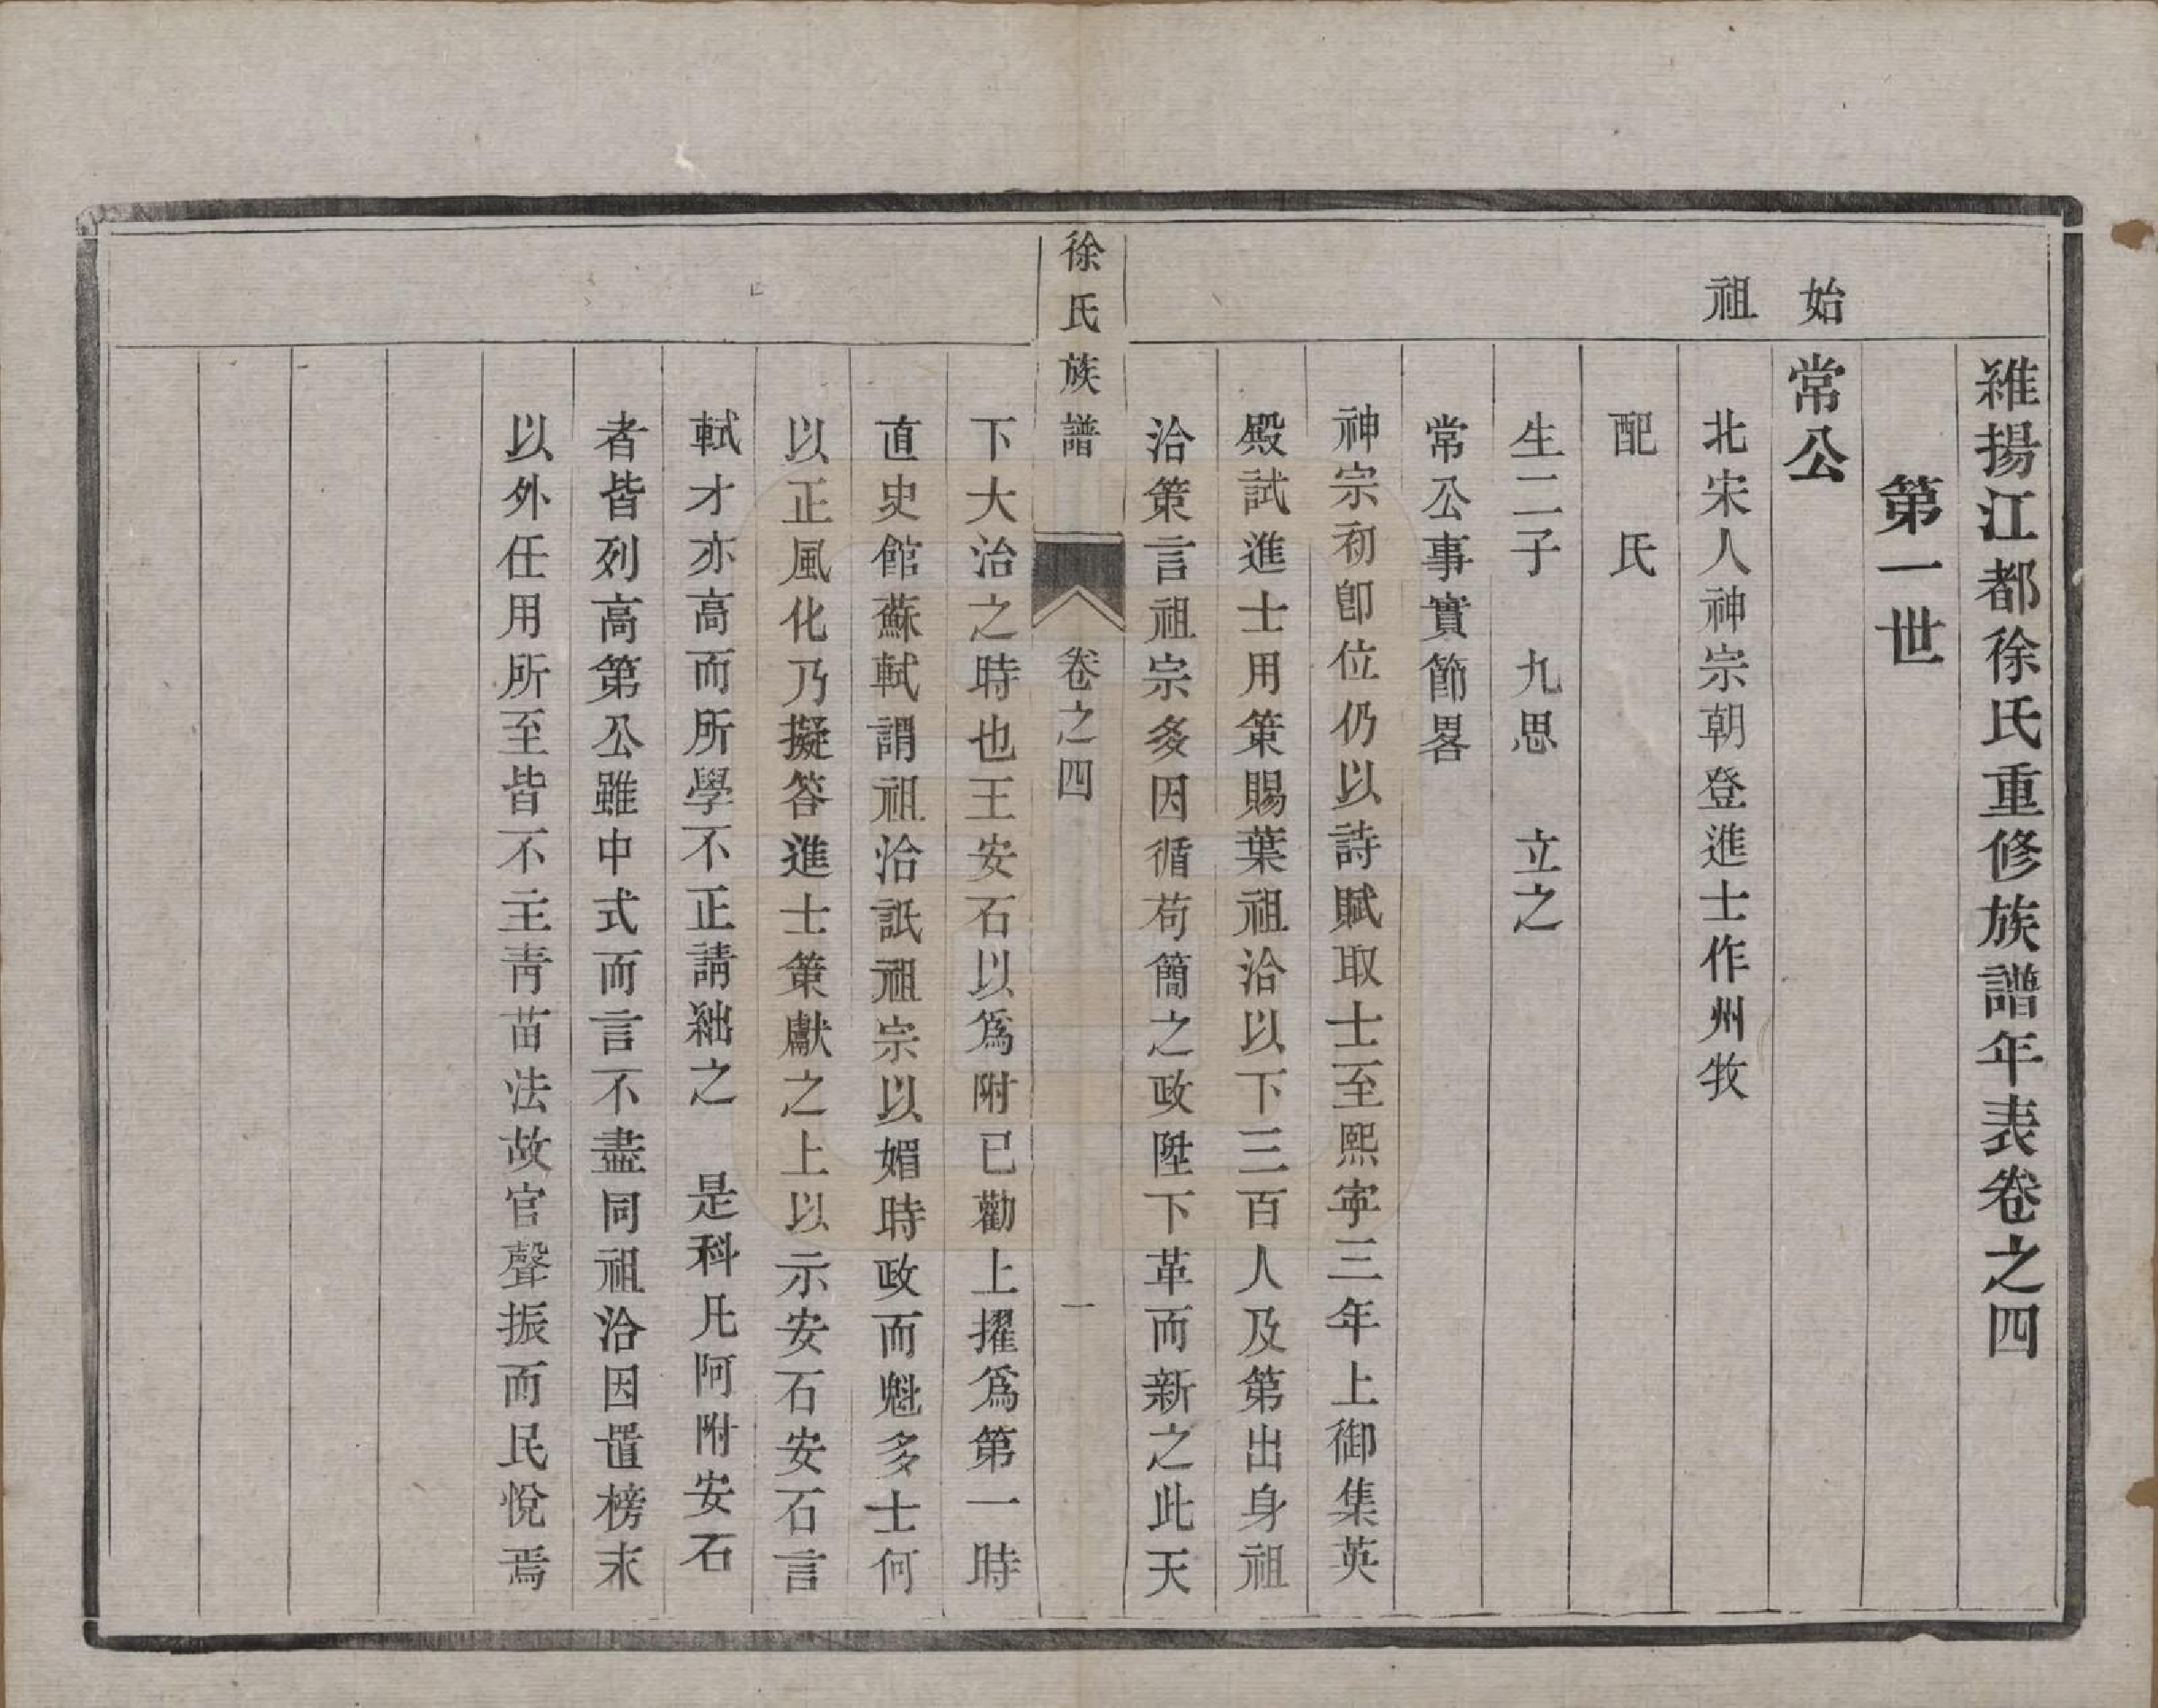 雒揚江都徐氏重修族譜年表卷之四
第一世
始祖
常公
北宋人神宗朝登進士作州牧
配　氏
生二子　九思　立之
常公事實節畧
神宗初卽位仍以詩賦取士至熙寧三年上御集英
殿試進士用策賜葉祖洽以下三百人及第出身祖
洽策言祖宗多因循苟簡之政陞下革而新之此天
徐氏族譜　卷之四　一
下大治之時也王安石以爲附已勸上擢爲第一時
直史館蘇軾謂祖洽詆祖宗以媚時政而魁多士何
以正風化乃擬答進士策獻之上以示安石安石言
軾才亦高而所學不正請絀之　是科凡阿附安石
者皆列高第公雖中式而言不盡同祖洽因置榜末
以外任用所至皆不主靑苗法故官聲振而民悅焉